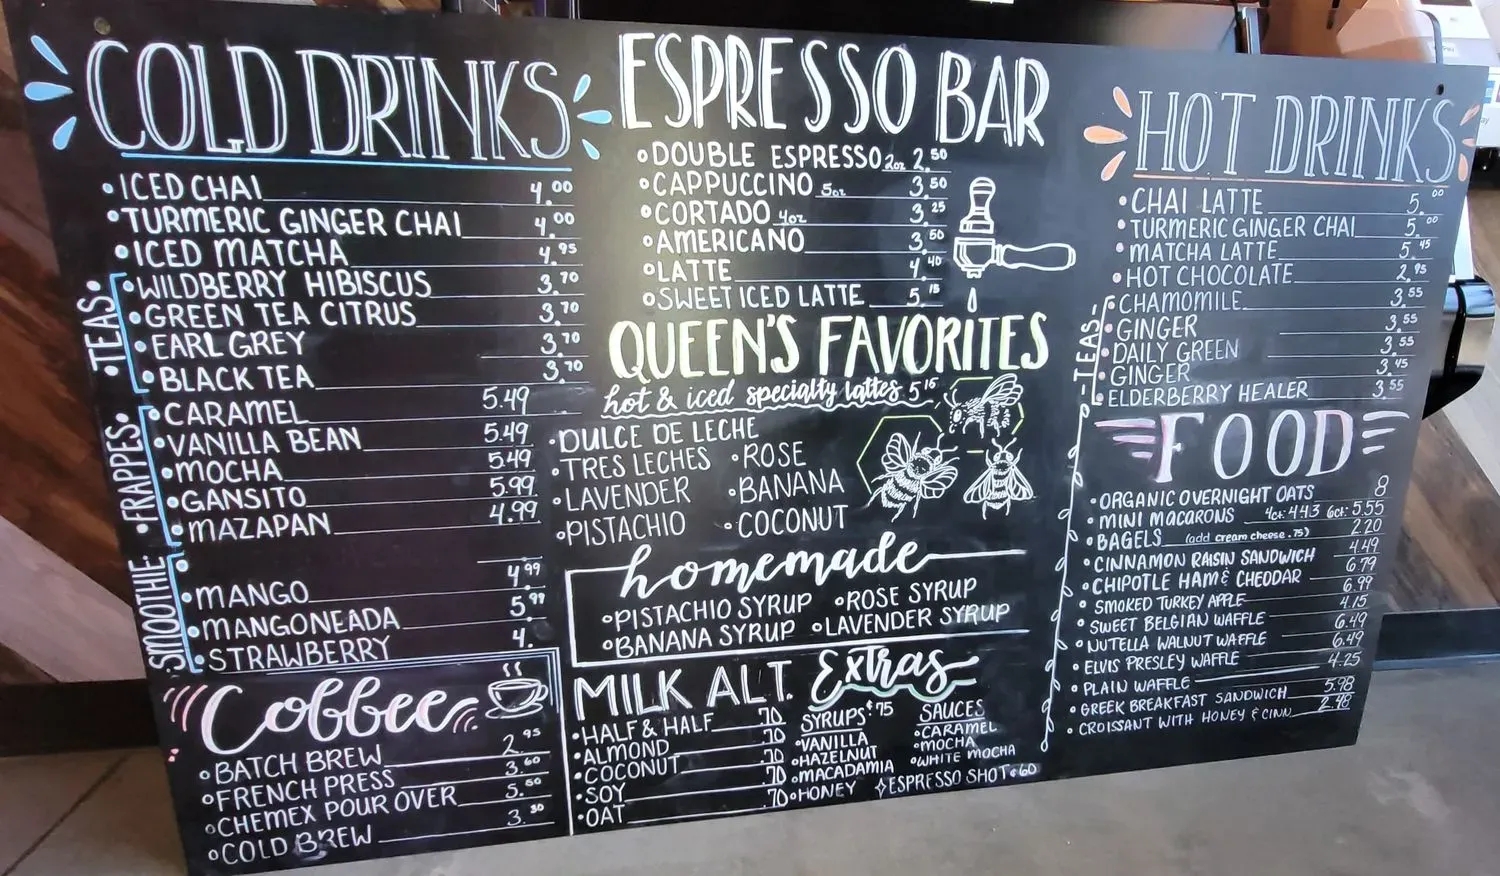 COLD DRINKS
ICED CHAI 4.00
TURMERIC GINGER CHAI 4.00
ICED MATCHA 4.95
TEAS
WILDBERRY HIBISCUS 3.70
GREEN TEA CITRUS 3.70
EARL GREY 3.70
BLACK TEA 3.70
FRAPPES
CARAMEL 5.49
VANILLA BEAN 5.49
MOCHA 5.49
GANSITO 5.99
MAZAPAN 4.99
SMOOTHIE
MANGO 4.99
MANGONEADA 5.99
STRAWBERRY 4.
Coffee
BATCH BREW 2.95
FRENCH PRESS 3.60
CHEMEX POUR OVER 5.50
COLD BREW 3.30
ESPRESSO BAR
DOUBLE ESPRESSO 2oz 2.50
CAPPUCCINO 5oz 3.50
CORTADO 4oz 3.25
AMERICANO 3.50
LATTE 4.40
SWEET ICED LATTE 5.15
QUEEN'S FAVORITES
hot & iced specialty lattes 5.15
DULCE DE LECHE
TRES LECHES
LAVENDER
PISTACHIO
ROSE
BANANA
COCONUT
homemade
PISTACHIO SYRUP
ROSE SYRUP
BANANA SYRUP
LAVENDER SYRUP
MILK ALT.
HALF & HALF .70
ALMOND .70
COCONUT .70
SOY .70
OAT .70
Extras
SYRUPS $.75
VANILLA
HAZELNUT
MACADAMIA
HONEY
SAUCES
CARAMEL
MOCHA
WHITE MOCHA
ESPRESSO SHOT $.60
HOT DRINKS
CHAI LATTE 5.00
TURMERIC GINGER CHAI 5.00
MATCHA LATTE 5.45
HOT CHOCOLATE 2.95
TEAS
CHAMOMILE 3.55
GINGER 3.55
DAILY GREEN 3.55
GINGER 3.45
ELDERBERRY HEALER 3.55
FOOD
ORGANIC OVERNIGHT OATS 8
MINI MACARONS 4ct: 4.43 6ct: 5.55
BAGELS (add cream cheese .75) 2.20
CINNAMON RAISIN SANDWICH 4.49
CHIPOTLE HAM & CHEDDAR 6.79
SMOKED TURKEY APPLE 6.99
SWEET BELGIAN WAFFLE 4.15
NUTELLA WALNUT WAFFLE 6.49
ELVIS PRESLEY WAFFLE 6.49
PLAIN WAFFLE 4.25
GREEK BREAKFAST SANDWICH 5.98
CROISSANT WITH HONEY & CINN. 2.48